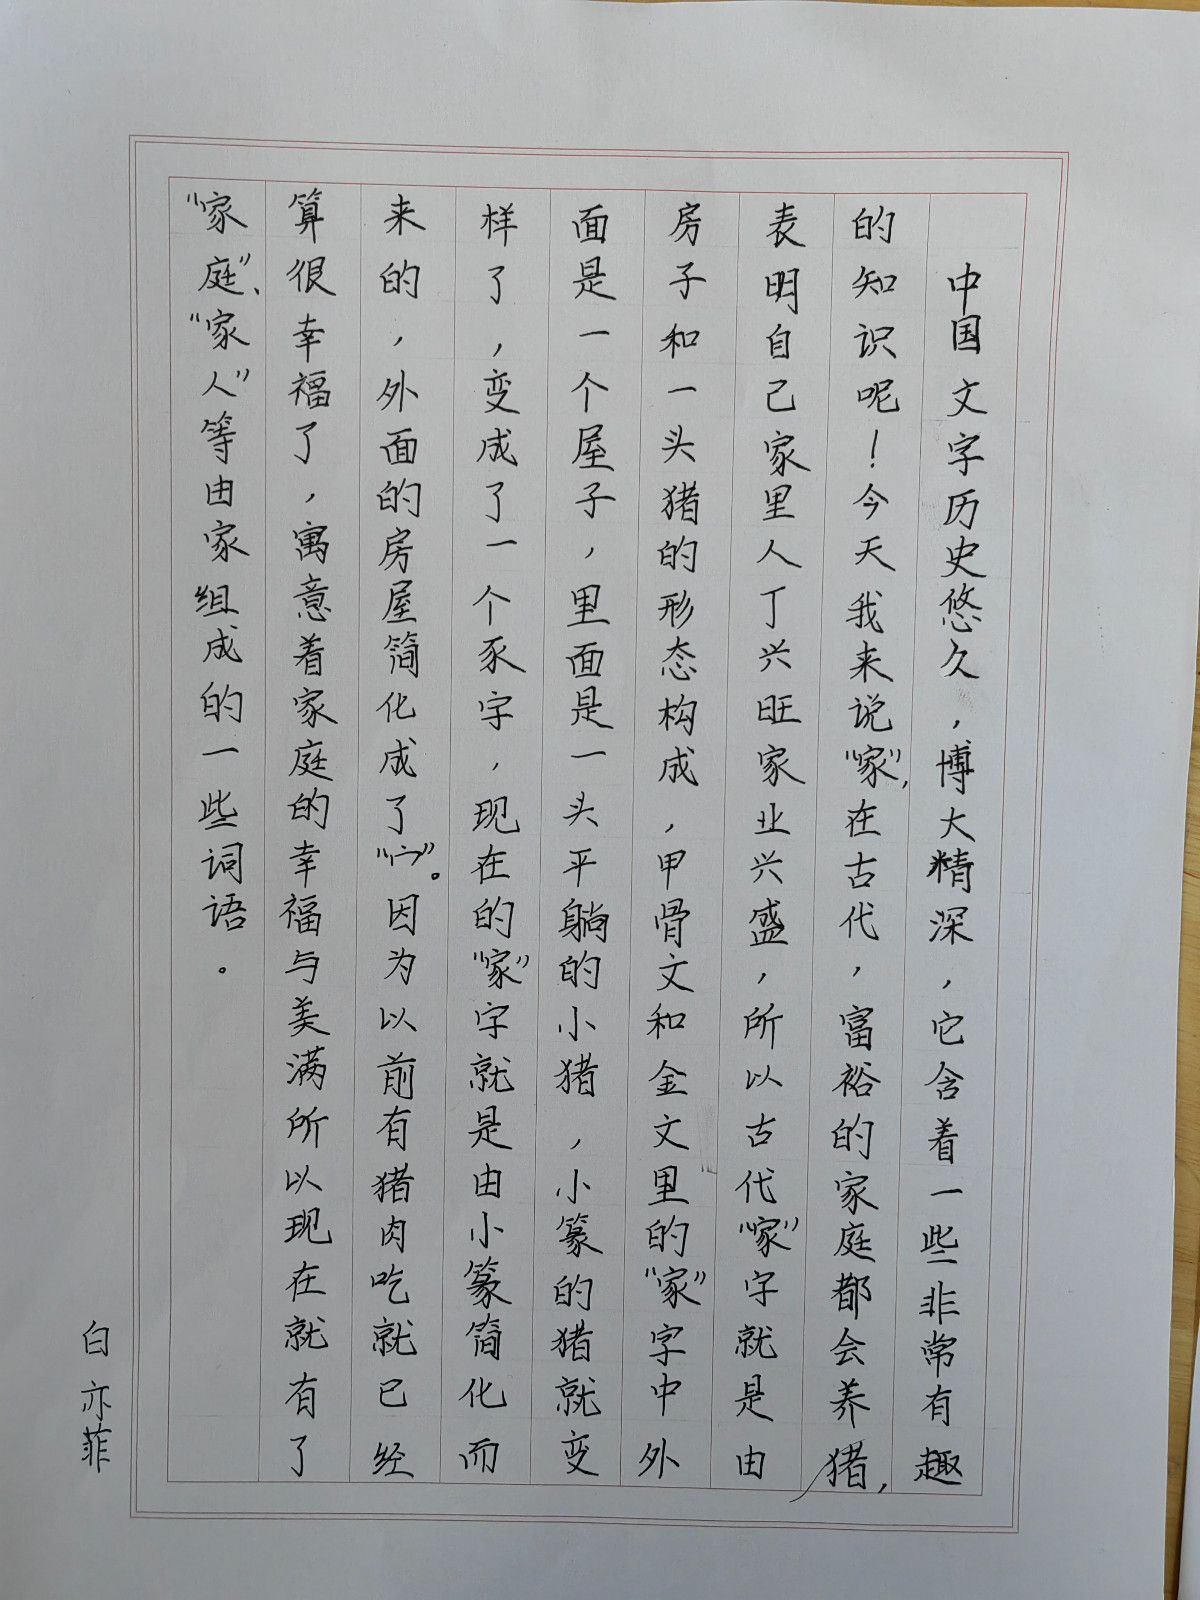 中国文字历史悠久，博大精深，它含着一些非常有趣
的知识呢！今天我来说“家”，在古代，富裕的家庭都会养猪，
表明自己家里人丁兴旺家业兴盛，所以古代“家”字就是由
房子和一头猪的形态构成，甲骨文和金文里的“家”字中外
面是一个屋子，里面是一头平躺的小猪，小篆的猪就变
样了，变成了一个豕字，现在的“家”字就是由小篆简化而
来的，外面的房屋简化成了“宀”。因为以前有猪肉吃就已经
算很幸福了，寓意着家庭的幸福与美满所以现在就有了
“家庭”、“家人”等由家组成的一些词语。
白亦菲